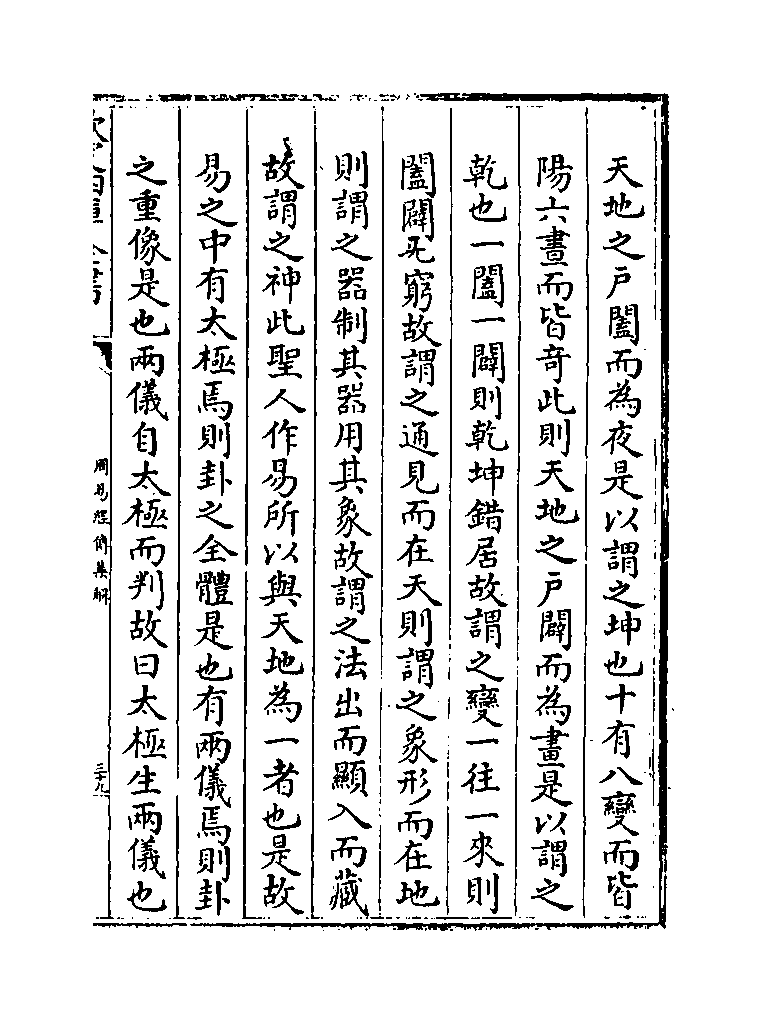 天地之戸闔而為夜是以謂之坤也十有八變而皆
陽六畫而皆竒此則天地之戸闢而為晝是以謂之
乾也一闔一闢則乾坤錯居故謂之變一往一來則
闔闢无窮故謂之通見而在天則謂之象形而在地
則謂之器制其器用其象故謂之法出而顯入而藏
故謂之神此聖人作易所以與天地為一者也是故
易之中有太極焉則卦之全體是也有兩儀焉則卦
之重像是也兩儀自太極而判故曰太極生兩儀也
欽定四庫全書
周易經傳集解
三十九